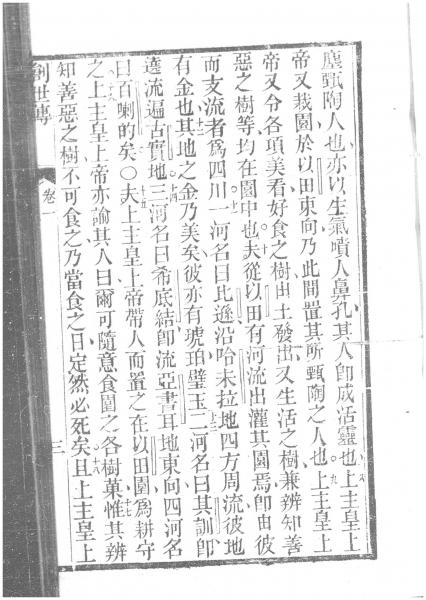 塵甄陶人也亦以生氣噴人鼻孔其人卽成活靈也八上主皇上
帝又栽園於以田東向乃此間置其所甄陶之人也九上主皇上
帝又令各項美看好食之樹出土發出又生活之樹兼辨知善
惡之樹等均在園中也十夫從以田有河流出灌其園焉卽由彼
而支流者爲四川十一一河名曰比遜沿哈未拉地四方周流彼地
有金也十二其地之金乃美矣彼亦有琥珀璧玉十三二河名曰其訓卽
遶流遍古實地十四三河名曰希底結卽流亞書耳地東向四河名
曰百喇的矣〇十五夫上主皇上帝帶人而置之在以田園爲耕守
之十六上主皇上帝亦諭其人曰爾可隨意食園之各樹菓十七惟其辨
知善惡之樹不可食之乃當食之日定然必死矣十八且上主皇上
創世傳
卷一
三